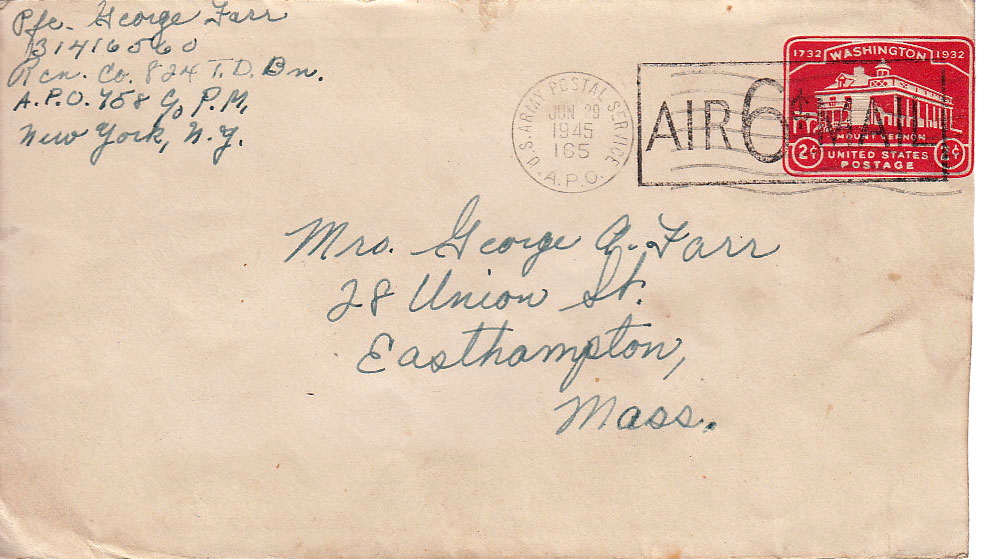 Pfc. George Farr
31416560
Rcn. Co. 824 T.D. Bn.
A.P.O. 758 c/o P.M.
New York, N.Y.
U.S. ARMY POSTAL SERVICE
JUN 29
1945
165
A.P.O.
AIR 6¢ MAIL
1732 WASHINGTON 1932
MOUNT VERNON
2¢ UNITED STATES 2¢
POSTAGE
Mrs. George A. Farr
28 Union St.
Easthampton,
Mass.